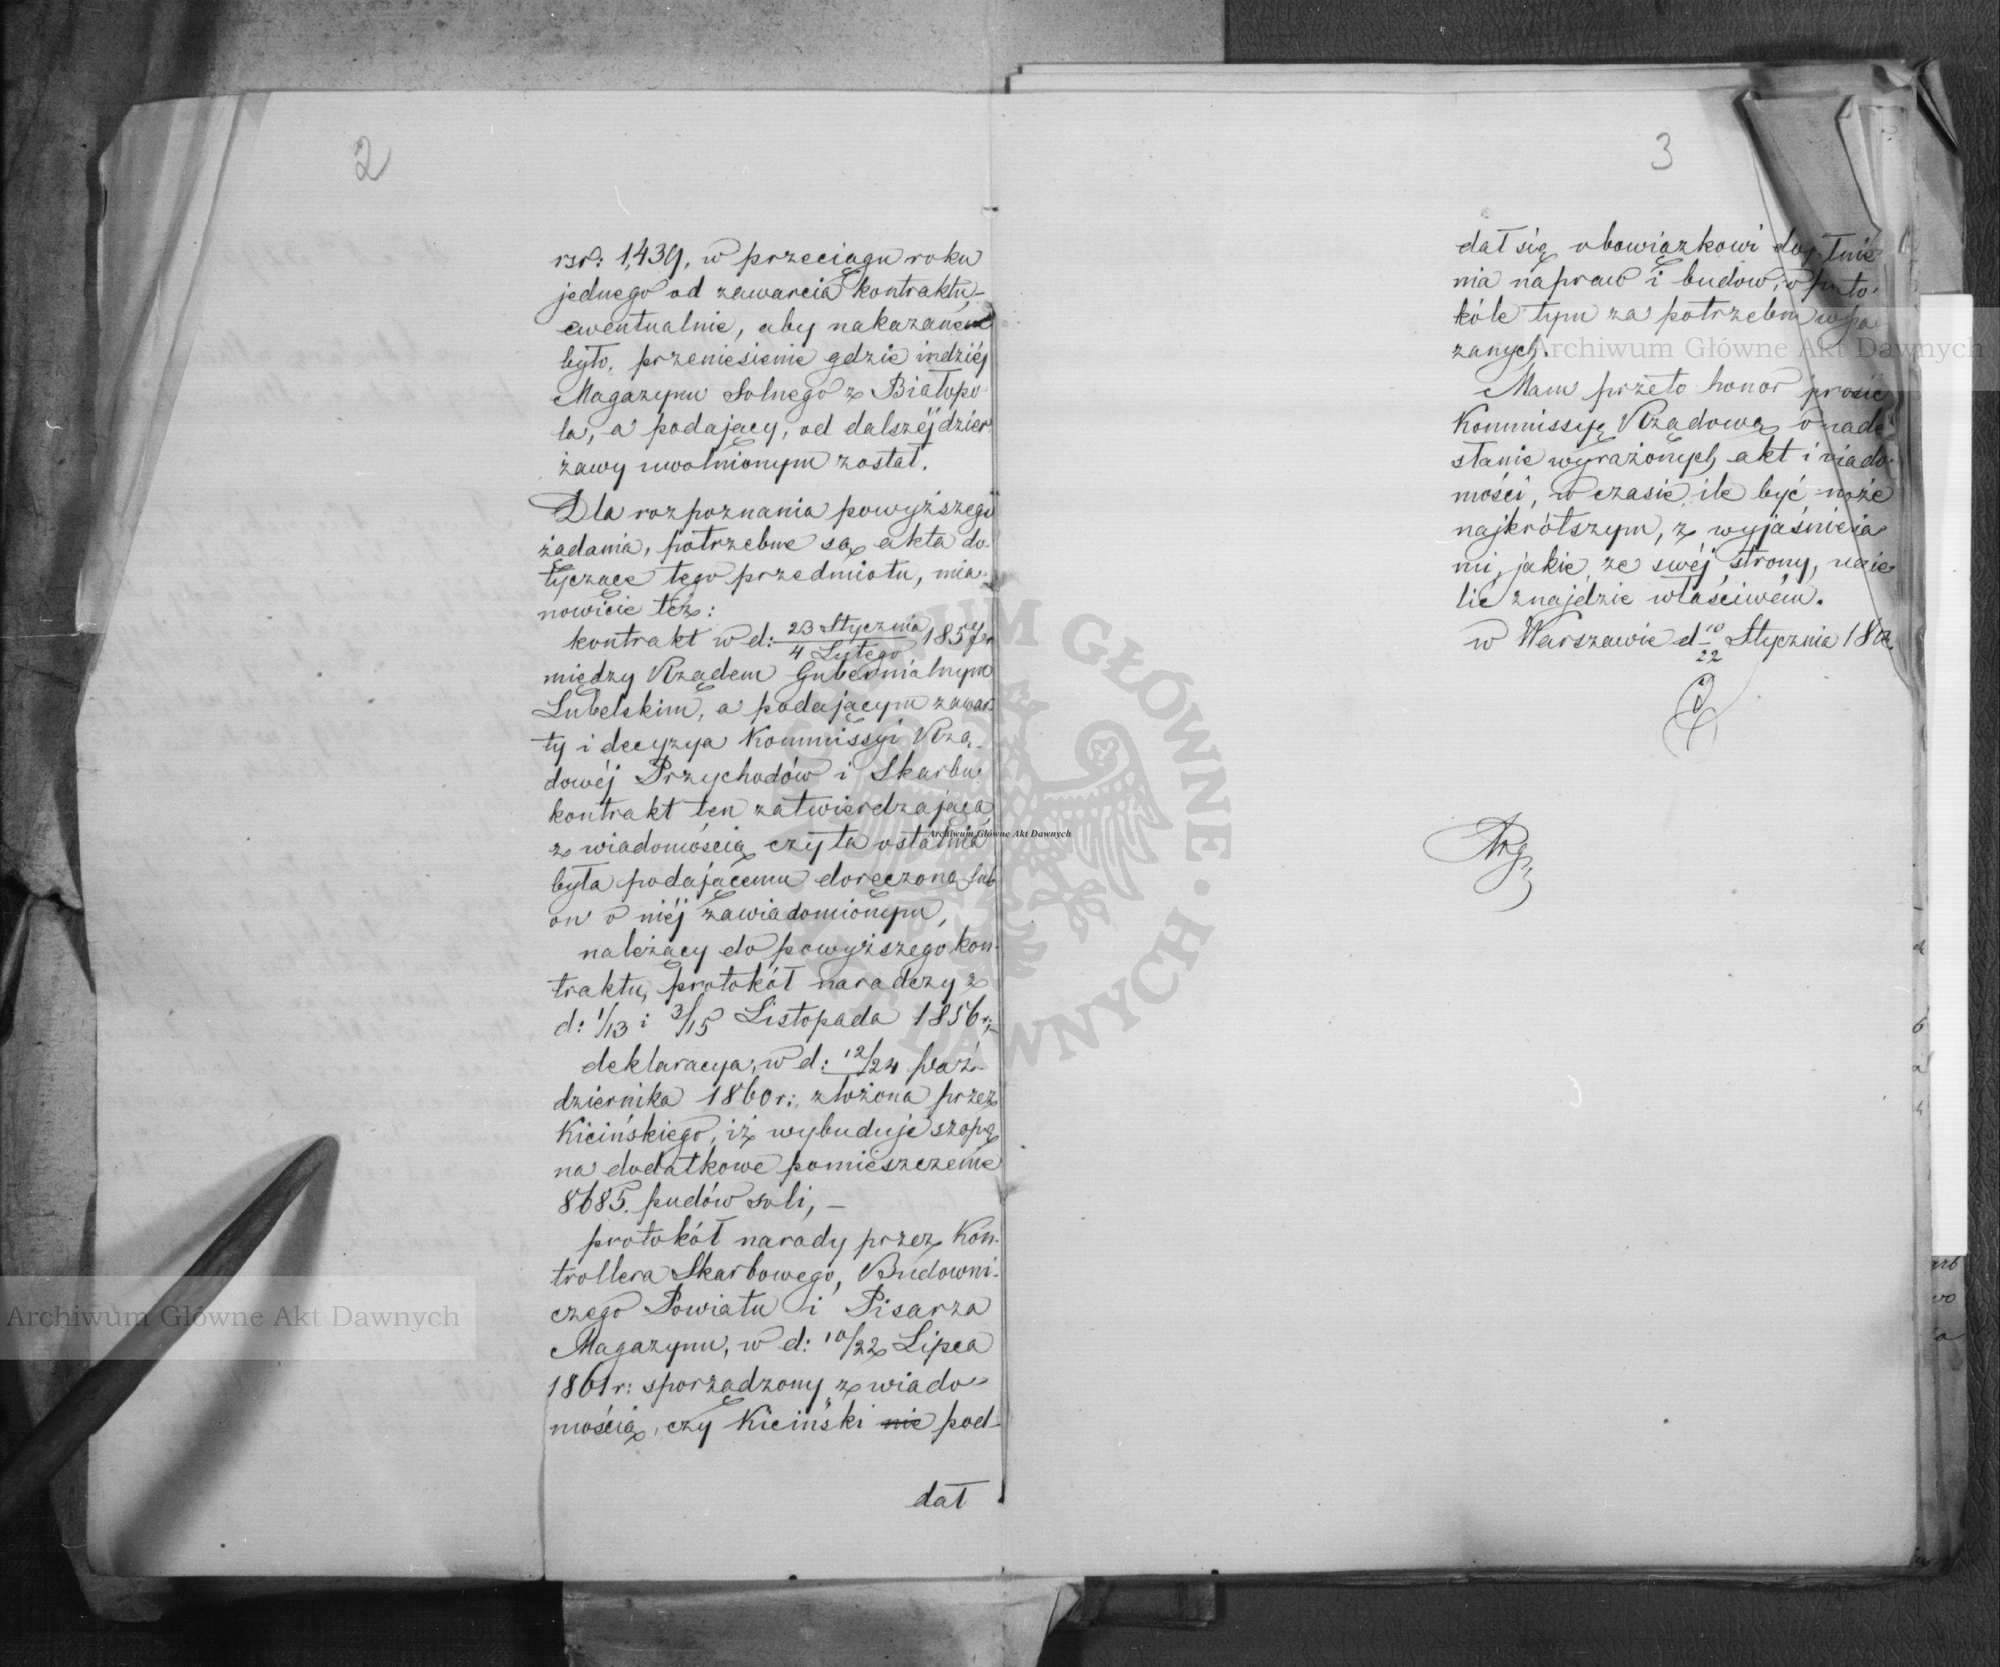 2
rsr: 1,439, w przeciągu roku
jednego od zawarcia kontraktu,–
ewentualnie, aby nakazanem
było, przeniesienie gdzie indziéj
Magazynu Solnego z Białopo-
la, a podający, od dalszéj dzier-
żawy uwolnionym został.
Dla rozpoznania powyższego
żądania, potrzebne są akta do-
tyczące tego przedmiotu, mia-
nowicie też:
kontrakt w d: 23 Stycznia / 4 Lutego
między Rządem Gubernialnym
Lubelskim, a podającym zawar-
ty i decyzya Kommissyi Rzą-
dowéj Przychodów i Skarbu
kontrakt ten zatwierdzająca,
z wiadomością czy ta ostatnia
była podającemu doręczoną lub
on o niéj zawiadomionym,
należący do powyższego kon-
traktu, protokół naradczy z
d: 1/13 i 3/15 Listopada 1856 r;–
deklaracya, w d: 12/24 Paź-
dziernika 1860 r: złożona przez
Kicińskiego, iż wybuduje szopę
na dodatkowe pomieszczenie
8685. pudów soli, –
protokół narady przez Kon-
trollera Skarbowego, Budowni-
czego Powiatu i Pisarza
Magazynu, w d: 10/22 Lipca
1861 r: sporządzony z wiado-
mością, czy Kiciński nie pod-
dał
3
dał się obowiązkowi dopełnie-
nia napraw i budow, w proto-
kóle tym za potrzebne wska-
zanych.
Mam przeto honor prosić
Kommissyę Rządową o nade-
słanie wyrażonych akt i wiado-
mości, w czasie ile być może
najkrótszym, z wyjaśnienia-
mi, jakie ze swéj strony, udzie-
lić znajdzie właściwém.
w Warszawie d 10/22 Stycznia
Archiwum Główne Akt Dawnych
Archiwum Główne Akt Dawnych
Archiwum Główne Akt Dawnych
ARCHIWUM GŁÓWNE AKT DAWNYCH